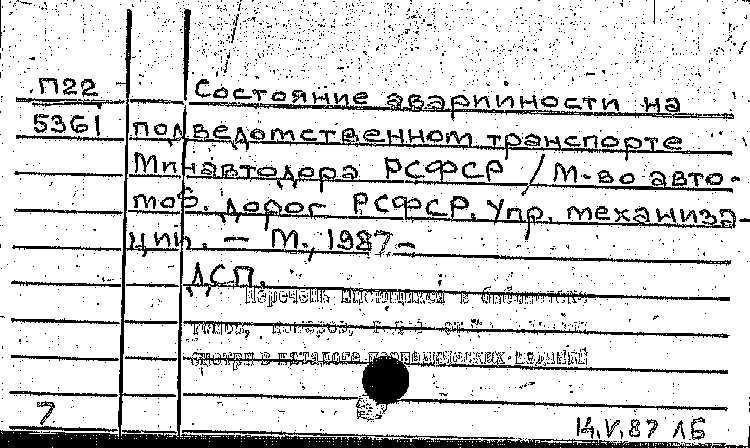 П22 Состояние аварийности на
5361 подведомственном транспорте
Минавтодора РСФСР / М-во авто-
моб. дорог РСФСР. Упр. механиза-
ции. – М., 1987 –
ДСП.
Перечень имеющихся в библиотеке
томов, номеров,
смотри в каталоге периодических изданий
7 14.V.87 ЛБ